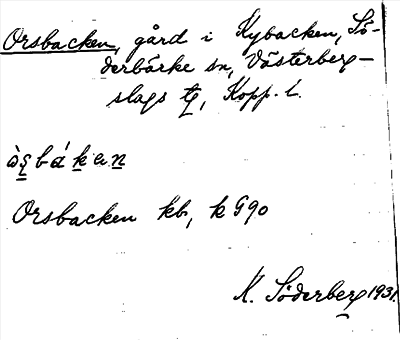 Orsbacken, gård i Kybacken, Sö-
derbärke sn, Västerberg-
slags tg, Kopp. l.
Orsbacken kb, k G90
K. Söderberg 1931.